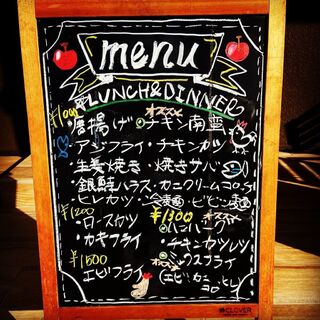 menu
LUNCH&DINNER
¥1000
オススメ
・唐揚げ・チキン南蛮
・アジフライ・チキンカツ
・生姜焼き・焼きサバ
・銀鮭ハラス・カニクリームコロッケ
・ヒレカツ・冷麺・ビビン麺
¥1200 ¥1300 オススメ
・ロースカツ ・ハンバーグ
・カキフライ ・チキンカツレツ
¥1500 オススメ
・エビフライ ・ミックスフライ
(エビ・カニ・ヒレ
CLOVER